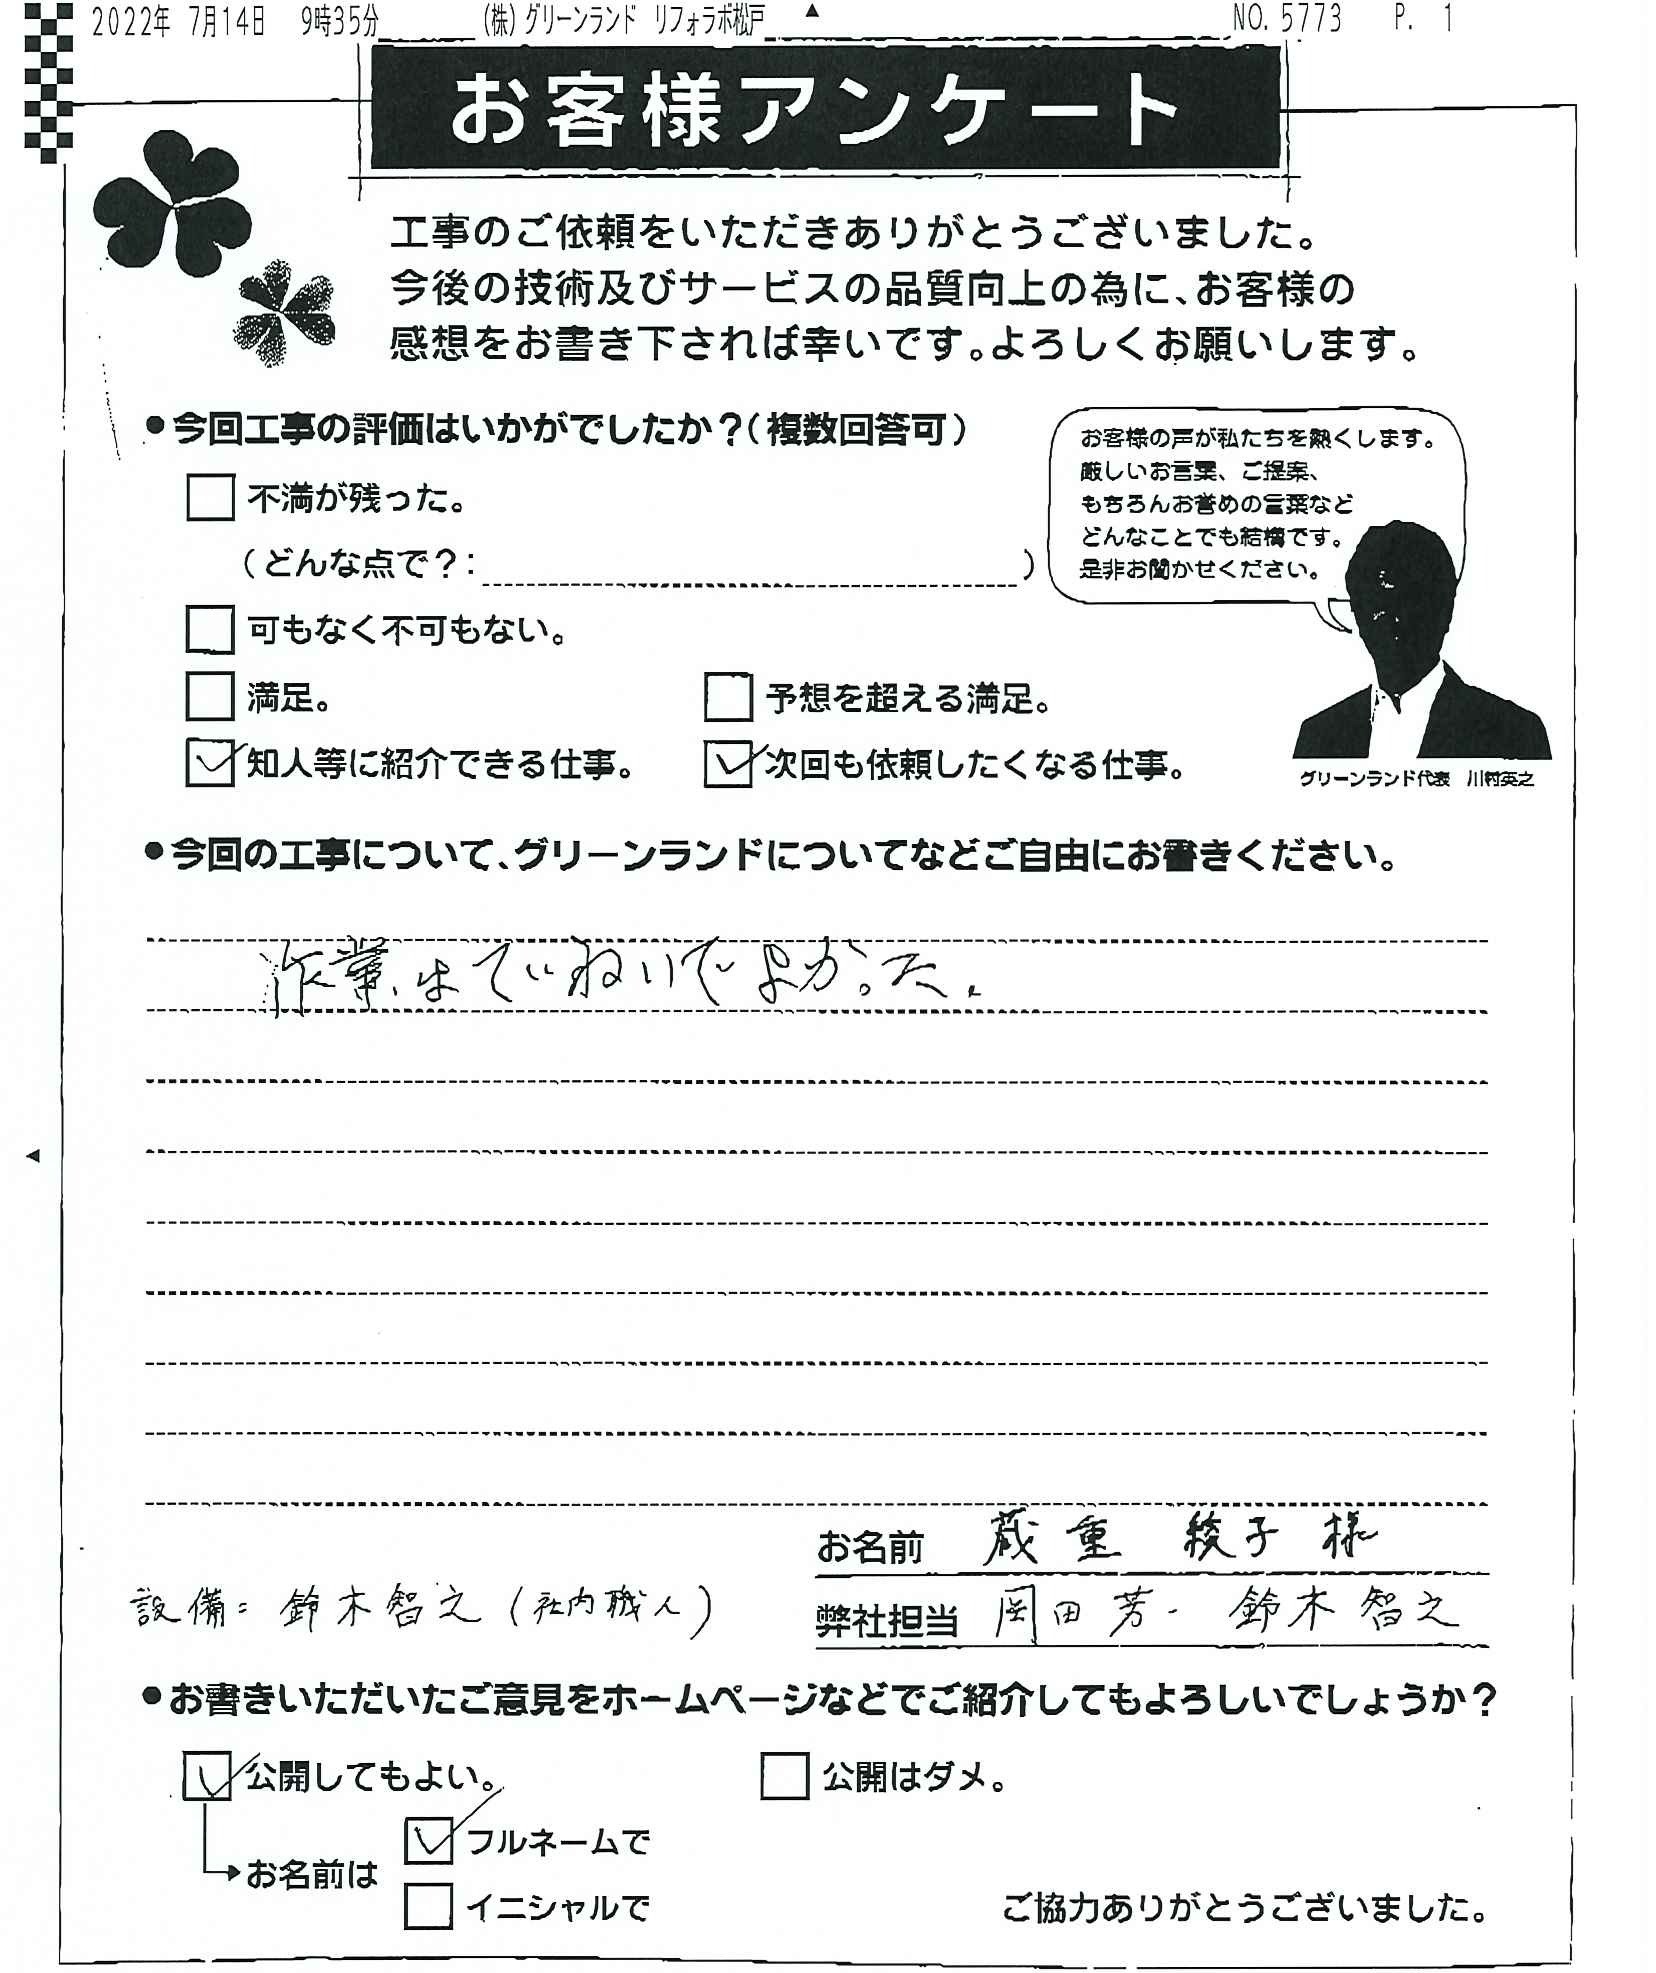 2022年 7月14日 9時35分 (株)グリーンランド リフォラボ松戸 NO.5773 P. 1
お客様アンケート
工事のご依頼をいただきありがとうございました。
今後の技術及びサービスの品質向上の為に、お客様の
感想をお書き下されば幸いです。よろしくお願いします。
●今回工事の評価はいかがでしたか?(複数回答可)
お客様の声が私たちを熱くします。
厳しいお言葉、ご提案、
もちろんお誉めの言葉など
どんなことでも結構です。
是非お聞かせください。
不満が残った。
(どんな点で?: )
可もなく不可もない。
満足。 予想を超える満足。
知人等に紹介できる仕事。 次回も依頼したくなる仕事。
グリーンランド代表 川村英之
●今回の工事について、グリーンランドについてなどご自由にお書きください。
作業はていねいでよかった。
お名前 蔵重 綾子 様
設備: 鈴木智之(社内職人)
弊社担当 岡田芳・鈴木智之
●お書きいただいたご意見をホームページなどでご紹介してもよろしいでしょうか?
公開してもよい。 公開はダメ。
フルネームで
お名前は
イニシャルで
ご協力ありがとうございました。